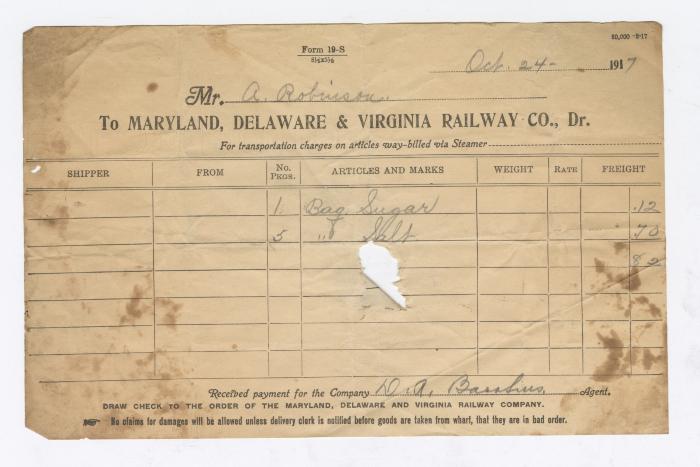 Form 19-S
8½x5½
80,000 -2-17
Oct. 24- 1917
Mr. A. Robinson.
To MARYLAND, DELAWARE & VIRGINIA RAILWAY CO., Dr.
For transportation charges on articles way-billed via Steamer
SHIPPER FROM No. PKGS. ARTICLES AND MARKS WEIGHT RATE FREIGHT
1 Bag Sugar .12
5 " Salt 70
82
Received payment for the Company D. A. Agent.
DRAW CHECK TO THE ORDER OF THE MARYLAND, DELAWARE AND VIRGINIA RAILWAY COMPANY.
No claims for damages will be allowed unless delivery clerk is notified before goods are taken from wharf, that they are in bad order.